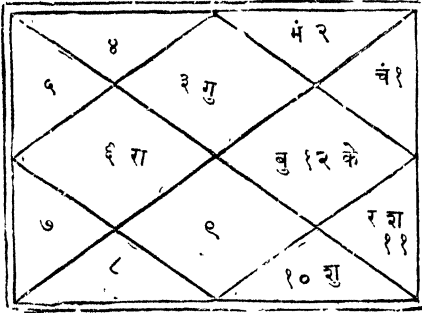 ४
मं २
५
३ गु
चं १
६ रा
बु १२ के
७
९
र श
११
८
१० शु